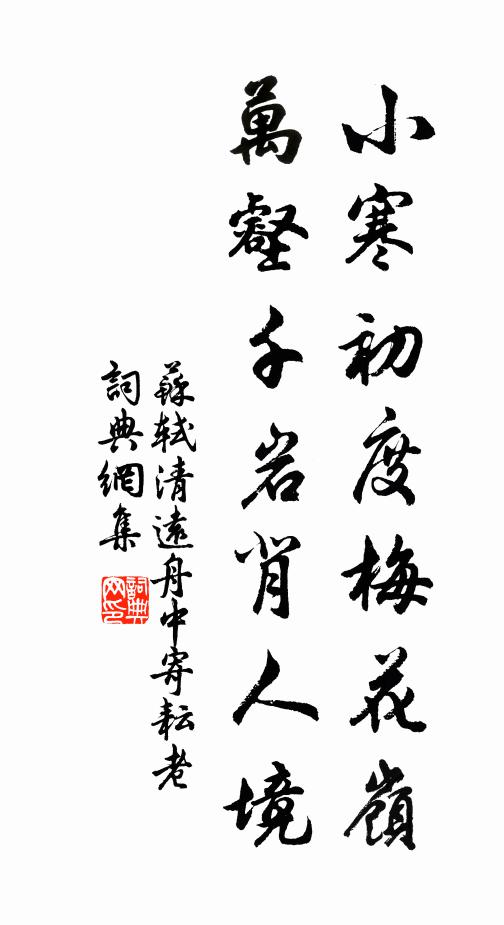 小寒初度梅花嶺
萬壑千岩背人境
蘇軾清遠舟中寄耘老
詞典網集
詞典網印